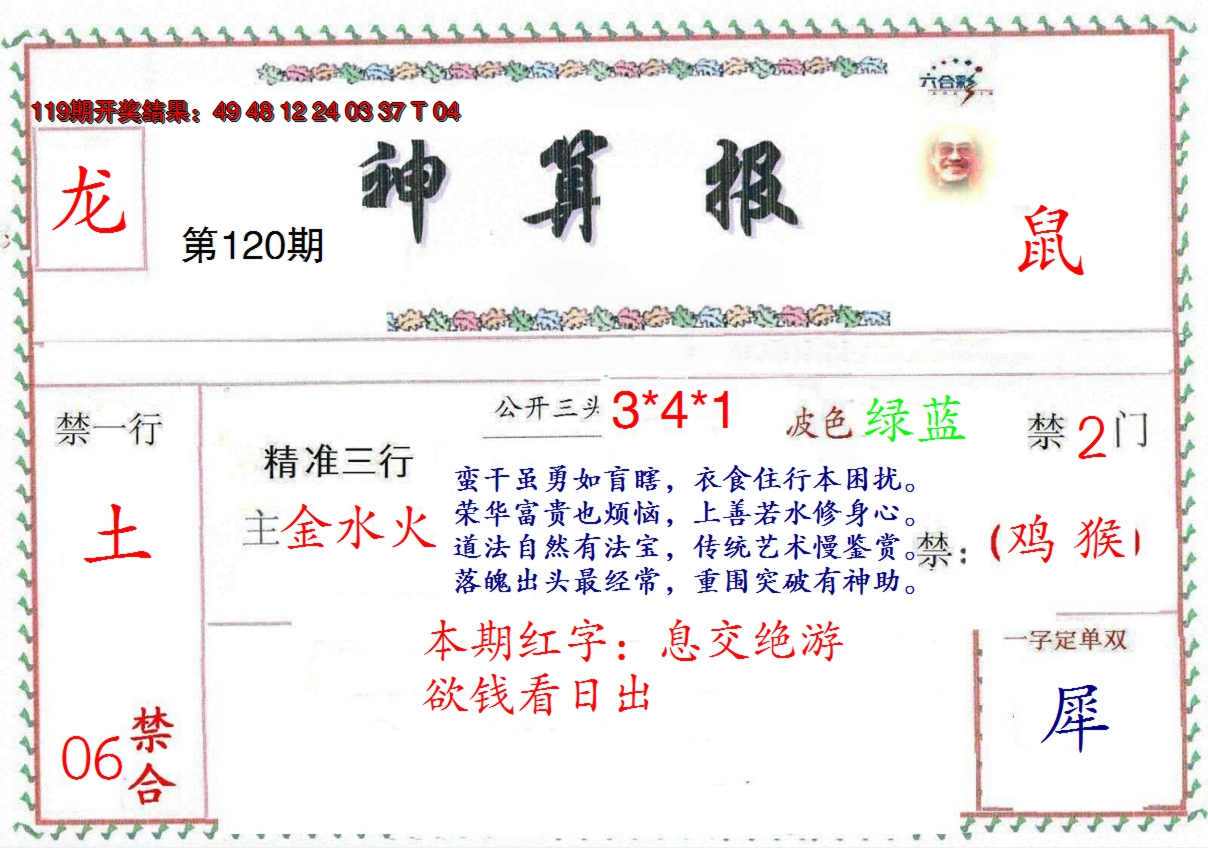 六合彩
119期开奖结果：49 48 12 24 03 37 T 04
龙
神算报
第120期
鼠
禁一行
土
06禁合
精准三行
主金水火
公开三头 3*4*1
波色 绿蓝
禁2门
蛮干虽勇如盲瞎，衣食住行本困扰。
荣华富贵也烦恼，上善若水修身心。
道法自然有法宝，传统艺术慢鉴赏。
落魄出头最经常，重围突破有神助。
禁：（鸡 猴）
本期红字：息交绝游
欲钱看日出
一字定单双
犀